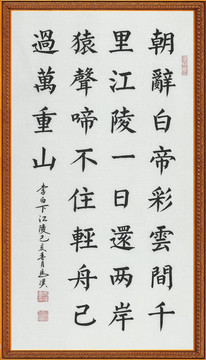 朝辭白帝彩雲間千
里江陵一日還兩岸
猿聲啼不住輕舟已
過萬重山
李白下江陵己亥春月